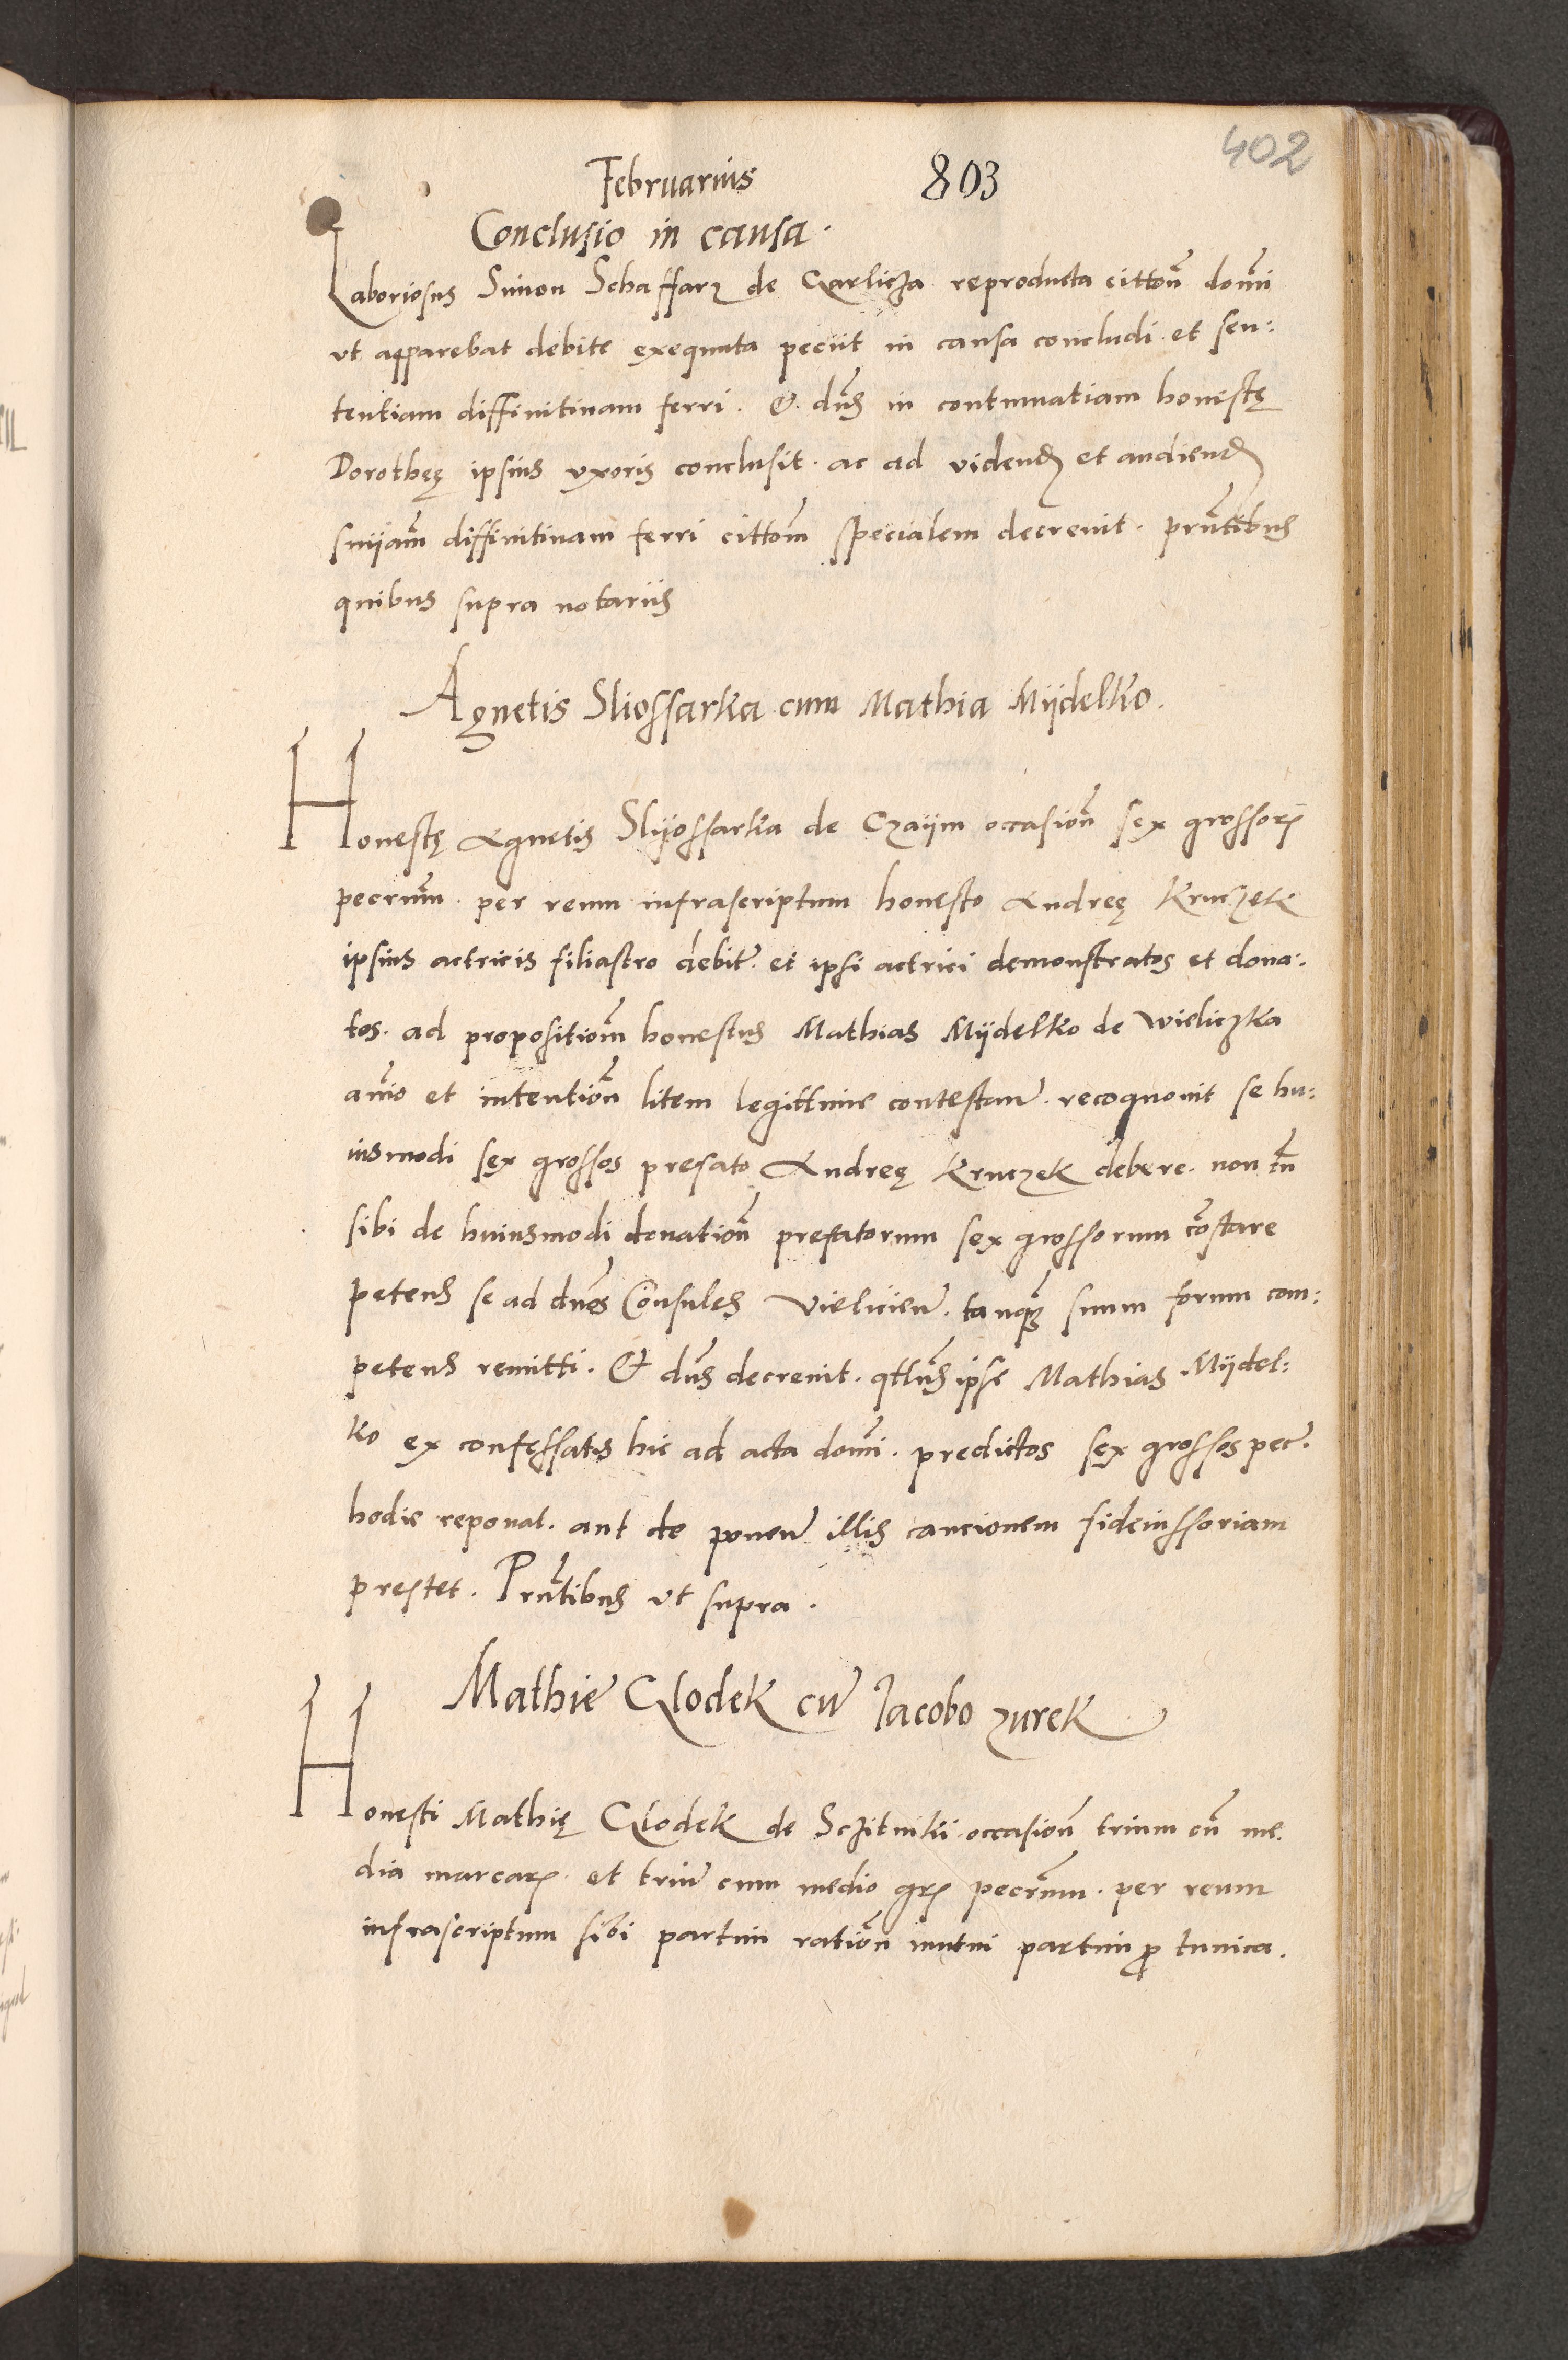 402
Februarius 803
Conclusio in causa.
Laboriosus Simon Schaffarz de Garlicza reproducta cittoñ domĩ
vt apparebat debite exequuta peciit in causa concludi et sen:
tentiam diffinitiuam ferri. Et dñs in contumatiam honestę
Dorotheę ipsius vxoris conclusit. ac ad videnđ et audienđ
snĩjam diffinitiuam ferri cittom̃ specialem decreuit. prñtibus
quibus supra notariis
Agnetis Sliossarka cum Mathia Mÿdelko.
Honestę Agnetis Slÿossarka de Czaÿm occasioñ sex grossoꝝ
pecũm. per reum infrascriptum honesto Andreę Kruczek
ipsius actricis filiastro debit̃. et ipsi actrici demonstratos et dona:
tos. ad propositiom̃ honestus Mathias Mÿdelko de Wieliczka
añio et intentioñ litem legittime contestañ. recognouit se hu:
iusmodi sex grossos prefato Andreę Kruczek debere. non tñ
sibi de huiusmodi donatioñ prefatorum sex grossorum cõstare
petens se ad dños Consules Vielicieñ. tanꝗ̃ suum forum com:
petens remitti. Et dñs decreuit. qt̃us ipse Mathias Mÿdel:
ko ex confessatis hic ad acta domĩ. predictos sex grossos pec̃.
hodie reponat. aut de poneñ illis caucionem fideiussoriam
prestet. Prñtibus vt supra.
Mathie Clodek cũ Jacobo Zurek
Honesti Mathię Clodek de Sczitniki occasioñ trium cũ me
dia marcaꝝ. et triũ cum medio grꝝ pecũm. per reum
infrascriptum sibi partim ratioñ mutui partim ꝓ tunica.